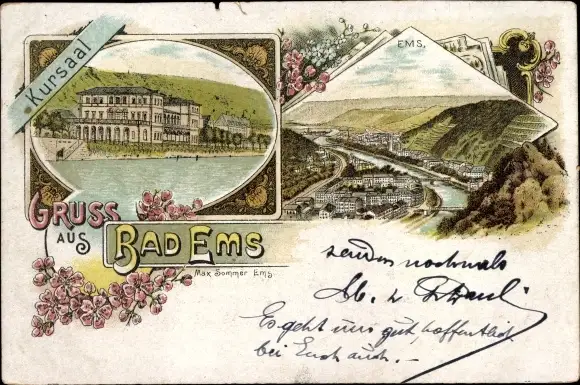 Kursaal
EMS.
GRUSS
AUS
BAD EMS
Max Sommer Ems.
senden nochmals
Es geht uns gut, hoffentlich
bei Euch auch. –